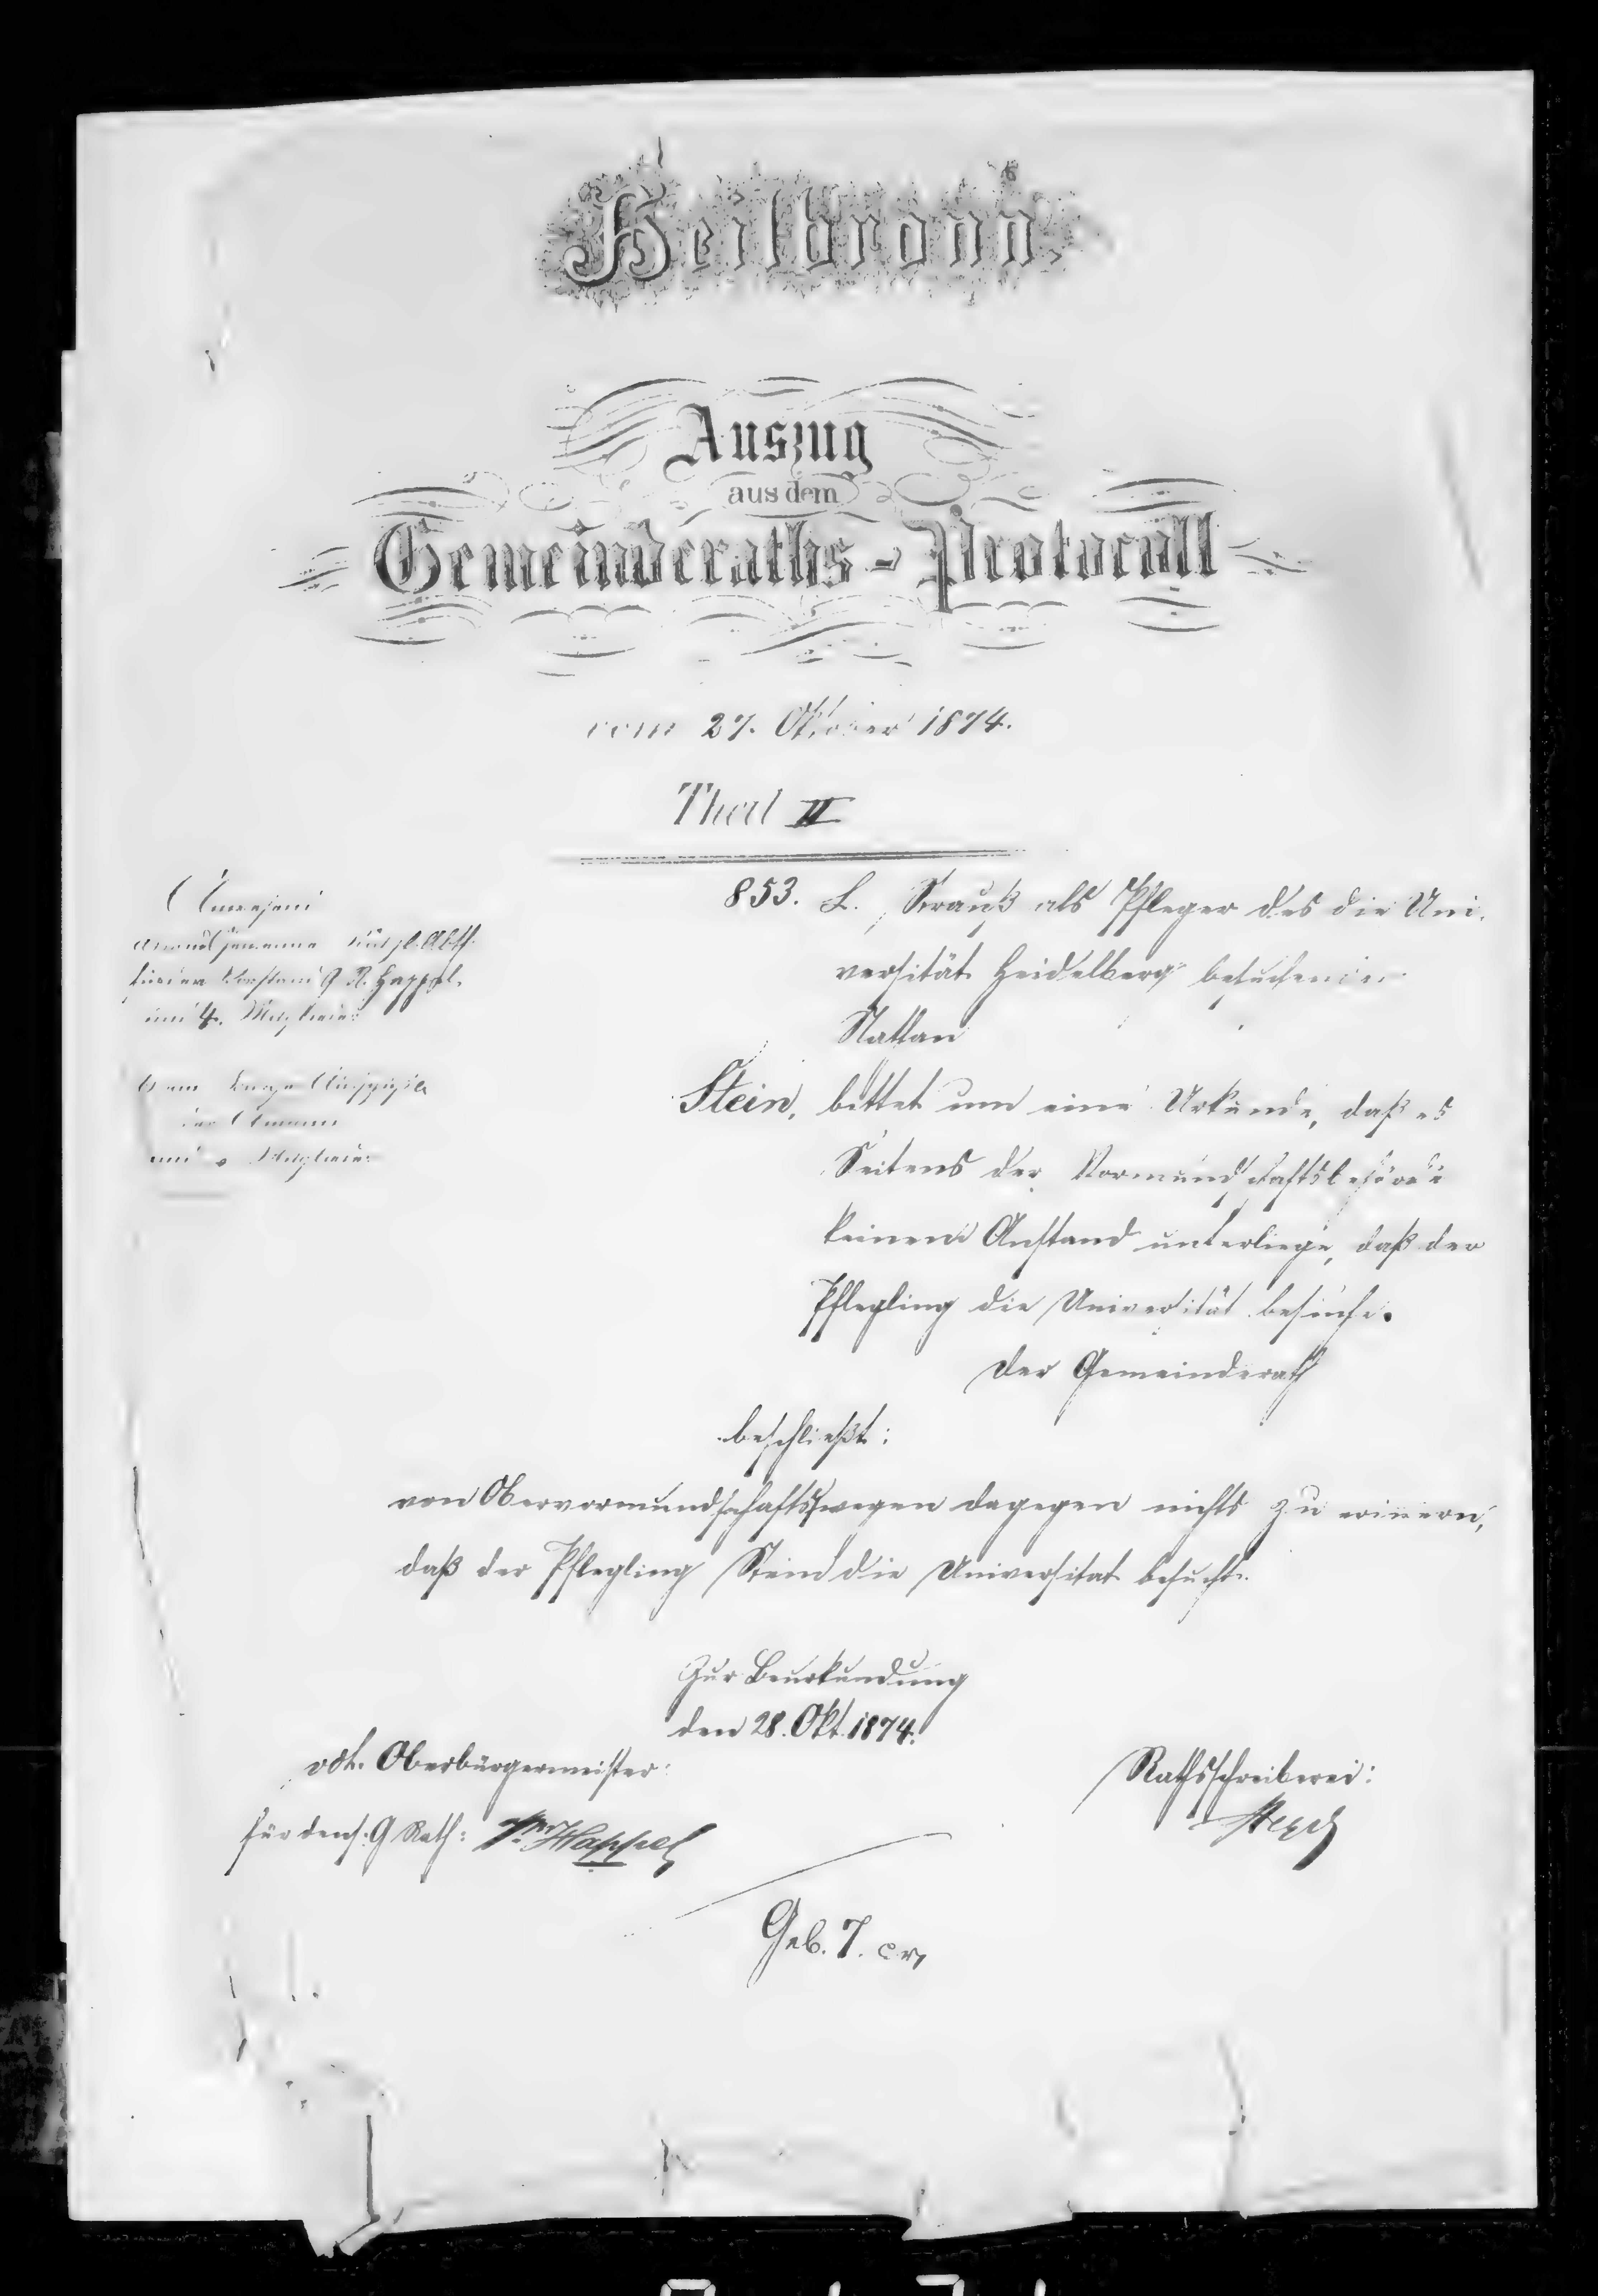 Heilbronn.
Auszug
aus dem
Gemeinderaths-Protocoll
vom 27. Oktober 1874.
Theil II
Anwesend
Vorstand G. R. Happel
und 4. Mitglieder
Obmann
und Mitglieder
853. L. Strauß als Pfleger des die Uni-
versität Heidelberg besuchenden
Nathan
Stein, bittet um eine Urkunde, daß es
Seitens der Vormundschaftsbehörde
keinem Anstand unterliege, daß der
Pflegling die Universität besuche.
Der Gemeinderath
beschließt:
von Obervormundschaftswegen dagegen nichts zu erinnern,
daß der Pflegling Stein die Universitat besucht.
Zur Beurkundung
den 28. Okt. 1874.
vdt. Oberbürgermeister:
Rathsschreiberei:
für dens. G Rath: Happel
Geb. 7. cr.